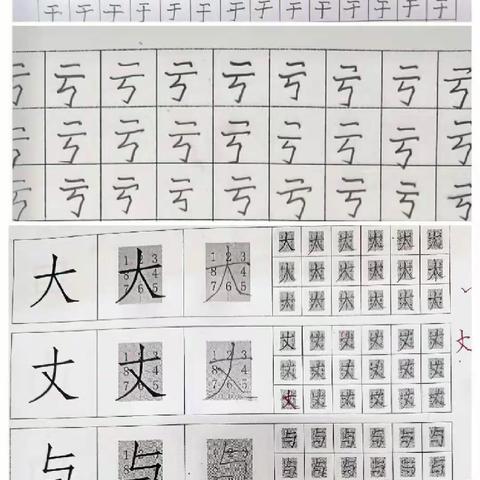 于 于 于 于 于 于 于 于 于 于 于 于 于 于
亏 亏 亏 亏 亏 亏 亏 亏 亏
亏 亏 亏 亏 亏 亏 亏 亏 亏
亏 亏 亏 亏 亏 亏 亏 亏 亏
大 大 大 大 大 大 大 大 大
大 大 大 大 大 大
大 大 大 大 大 大
丈 丈 丈 丈 丈 丈 丈 丈 丈 丈
丈 丈 丈 丈 丈 丈
丈 丈 丈 丈 丈 丈
与 与 与 与 与 与 与 与 与
与 与 与 与 与 与